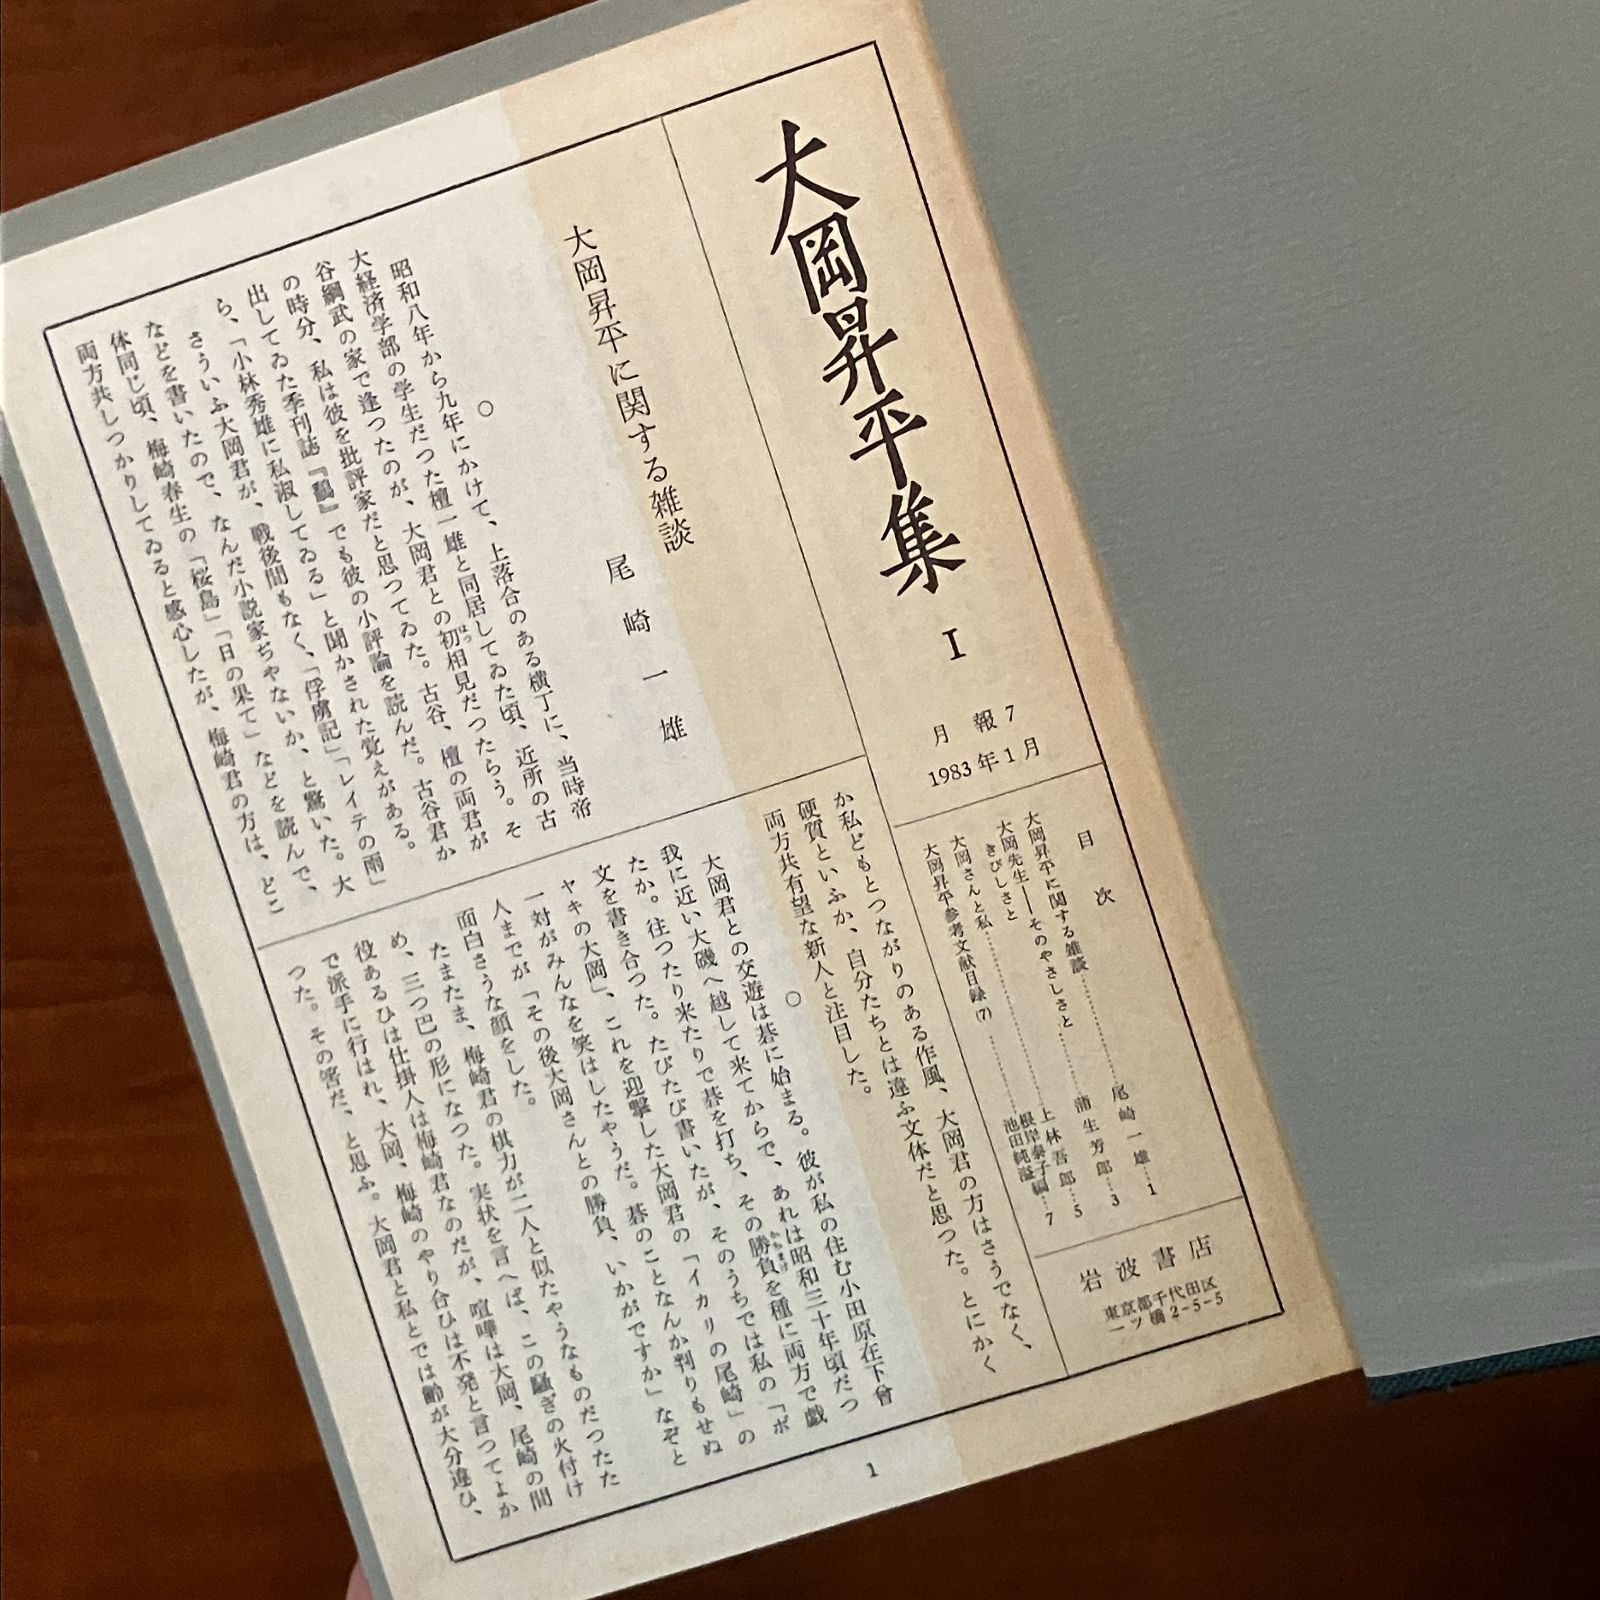 大岡昇平集 I
月報 7
1983年1月
目次
大岡昇平に関する雑談……尾崎一雄…1
大岡先生——そのやさしさと
きびしさと……蒲生芳郎…3
大岡さんと私……上林吾郎…5
大岡昇平参考文献目録(7)……根岸泰子 池田純溢 編…7
岩波書店
東京都千代田区
一ツ橋2-5-5
大岡昇平に関する雑談
尾崎一雄
○
昭和八年から九年にかけて、上落合のある横丁に、当時帝
大経済学部の学生だつた檀一雄と同居してゐた頃、近所の古
谷綱武の家で逢つたのが、大岡君との初相見だつたらう。そ
の時分、私は彼を批評家だと思つてゐた。古谷、檀の両君が
出してゐた季刊誌『鷭』でも彼の小評論を読んだ。古谷君か
ら、「小林秀雄に私淑してゐる」と聞かされた覚えがある。
さういふ大岡君が、戦後間もなく、「俘虜記」「レイテの雨」
などを書いたので、なんだ小説家ぢやないか、と驚いた。大
体同じ頃、梅崎春生の「桜島」「日の果て」などを読んで、
両方共しつかりしてゐると感心したが、梅崎君の方は、どこ
か私どもとつながりのある作風、大岡君の方はさうでなく、
硬質といふか、自分たちとは違ふ文体だと思つた。とにかく
両方共有望な新人と注目した。
○
大岡君との交遊は碁に始まる。彼が私の住む小田原在下曾
我に近い大磯へ越して来てからで、あれは昭和三十年頃だつ
たか。往つたり来たりで碁を打ち、その勝負を種に両方で戯
文を書き合つた。たびたび書いたが、そのうちでは私の「ボ
ヤキの大岡」、これを迎撃した大岡君の「イカリの尾崎」の
一対がみんなを笑はしたやうだ。碁のことなんか判りもせぬ
人までが「その後大岡さんとの勝負、いかがですか」なぞと
面白さうな顔をした。
たまたま、梅崎君の棋力が二人と似たやうなものだつたた
め、三つ巴の形になつた。実状を言へば、この騒ぎの火付け
役あるひは仕掛人は梅崎君なのだが、喧嘩は大岡、尾崎の間
で派手に行はれ、大岡、梅崎のやり合ひは不発と言つてよか
つた。その筈だ、と思ふ。大岡君と私とでは齢が大分違ひ、
1